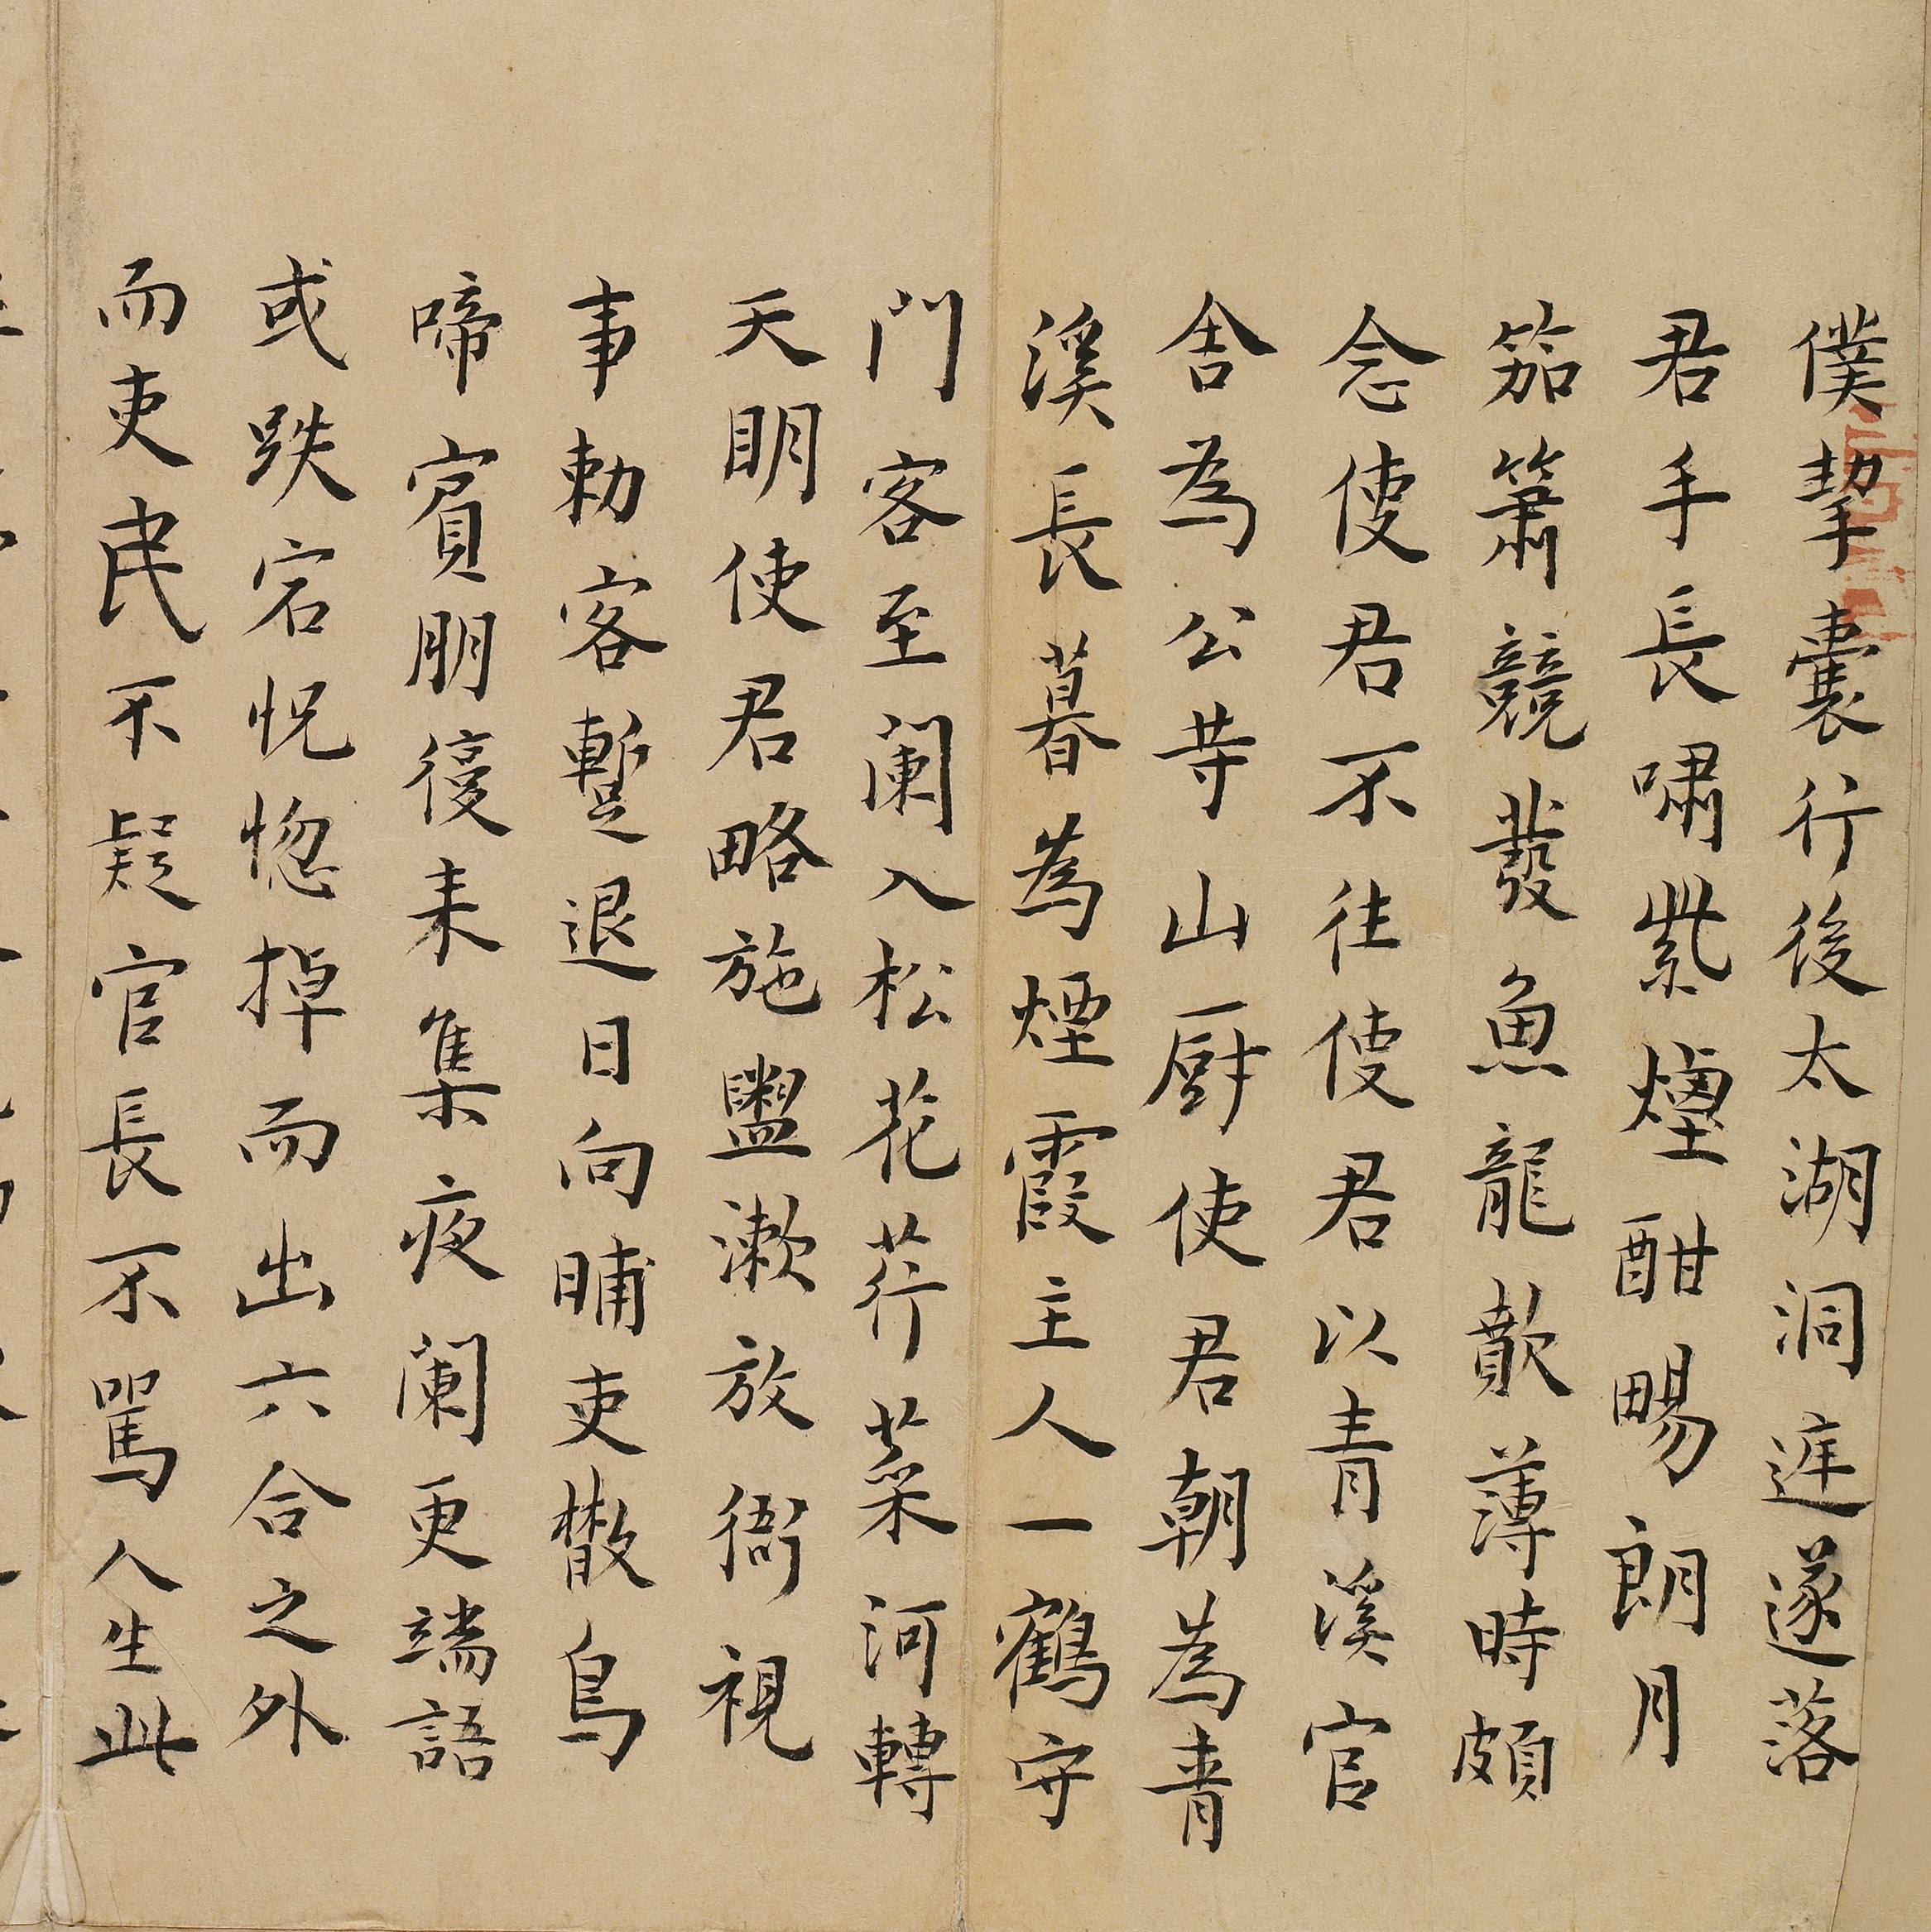 僕挈囊行後太湖洞庭遂落
君手長嘯紫煙酣暢朗月
笳簫競發魚龍歕薄時頗
念使君不往使君以青溪官
舍為公寺山廚使君朝為青
溪長暮為煙霞主人一鶴守
門客至闌入松花荇菜河轉
天明使君略施盥漱放衙視
事勅客暫退日向晡吏散鳥
啼賓朋復来集夜闌更端語
或跌宕怳惚掉而出六合之外
而吏民不疑官長不罵人生此